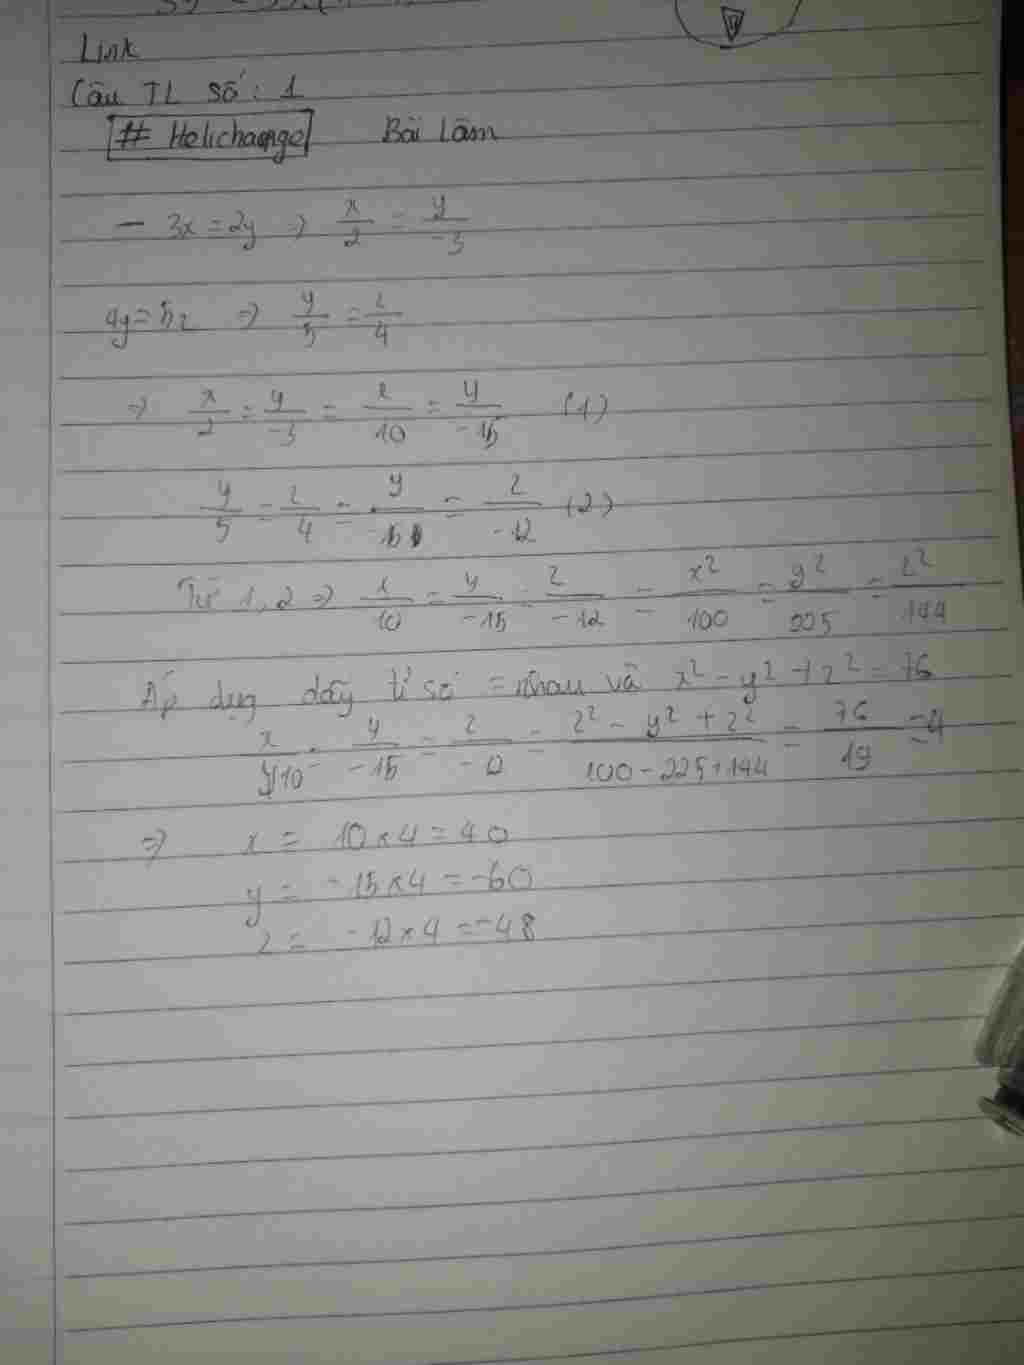 Link
Câu TL số: 1
# Helichange Bài làm
- 3x = 2y => x/2 = y/-3
4y = 5z => y/5 = z/4
=> x/2 = y/-3 = x/10 = y/-15 (1)
y/5 = z/4 = y/-15 = z/-12 (2)
Từ 1, 2 => x/10 = y/-15 = z/-12 = x²/100 = y²/225 = z²/144
Áp dụng dãy tỉ số = nhau và x² - y² + z² = 76
x/10 = y/-15 = z/-12 = z² - y² + z²/100 - 225 + 144 = 76/19 = 4
=> x = 10 × 4 = 40
y = -15 × 4 = -60
z = -12 × 4 = -48